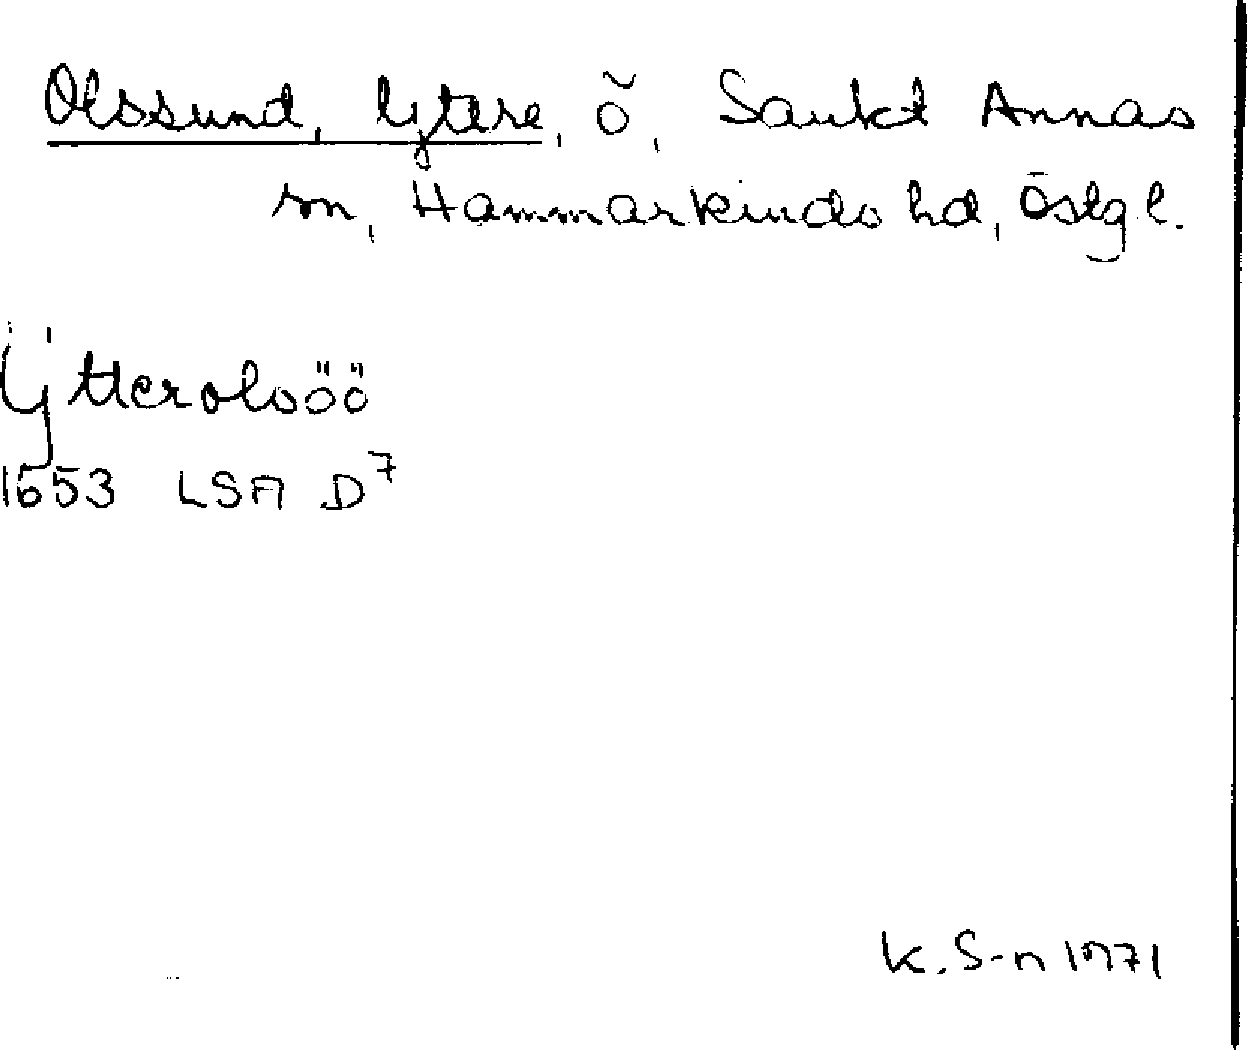 Olssund, Yttre, ö, Sankt Annas
sn, Hammarkinds hd, Östgl.
Ÿtterolsöö
1653 LSA D7
K. S-n 1971